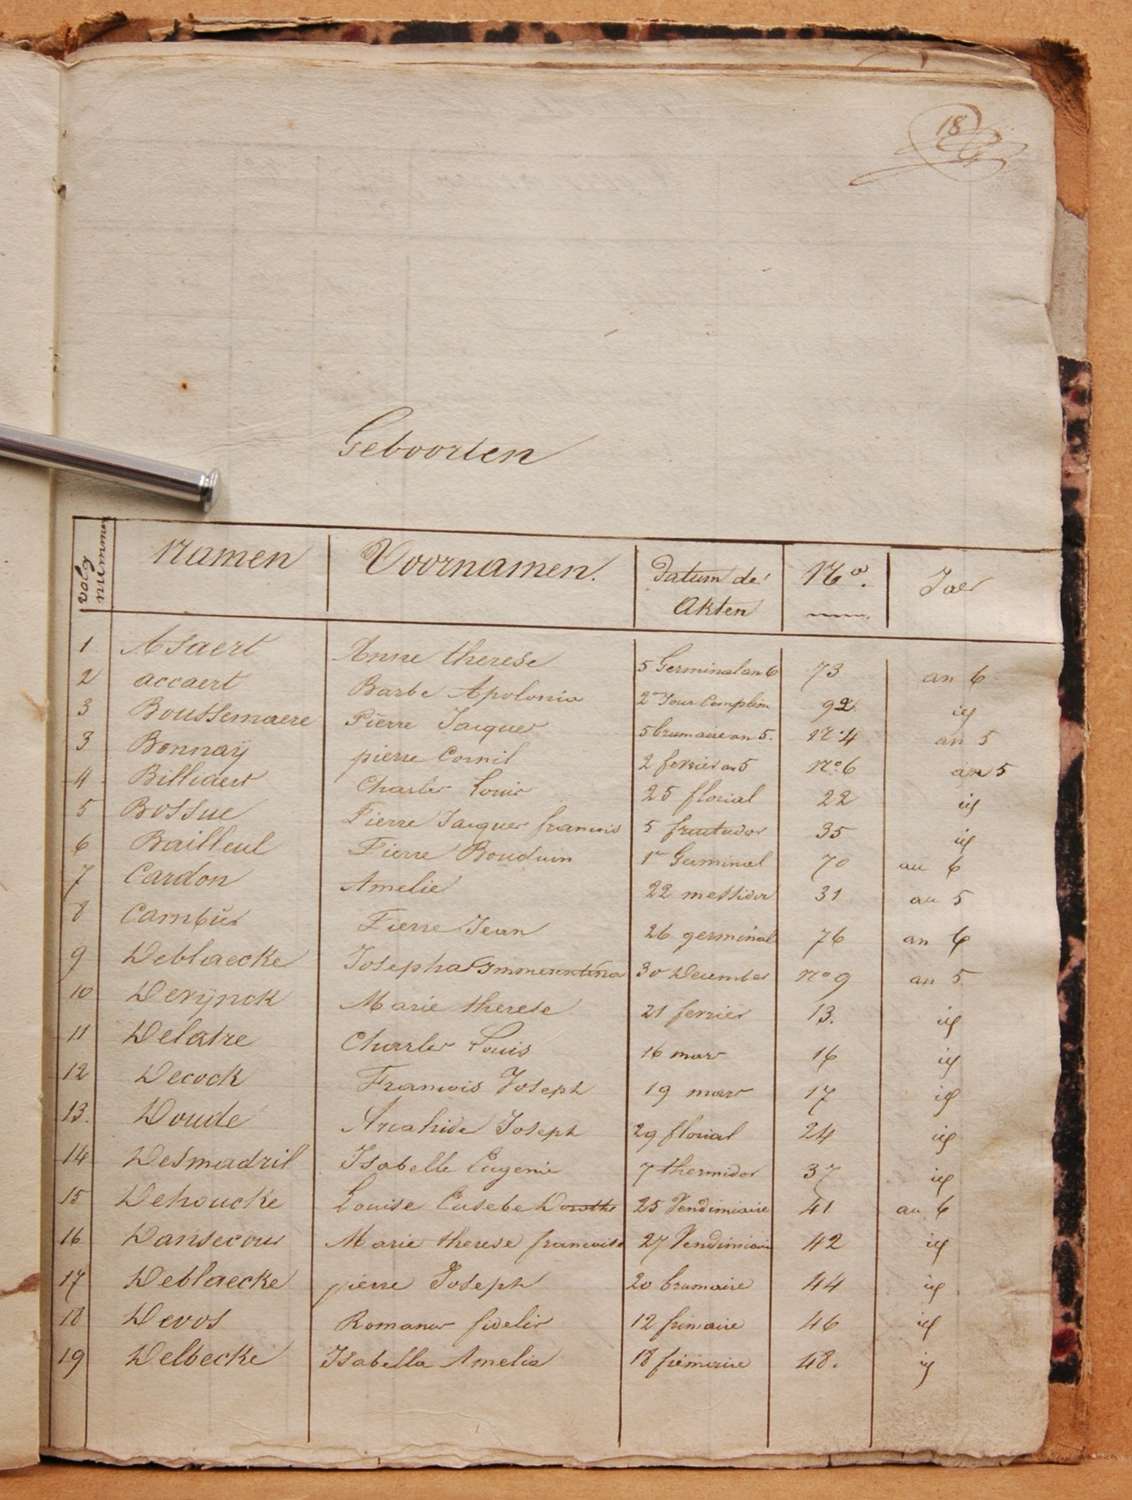 18
Geboorten
volg nummer Namen Voornamen. Datum de Akten No. Jaer
1 Asaert Anne therese 5 Germinal an 6 73 an 6
2 accaert Barbe Apolonia 2e Jour Complem 92 id
3 Boussemaere Pierre Jacques 5 brumaire an 5. No. 4 an 5
3 Bonnaÿ pierre Cornil 2 fevrier an 5 No. 6 an 5
4 Billiaert Charles Louis 25 florial 22 id
5 Bossue Pierre Jacques francois 5 fructidor 35 id
6 Bailleul Pierre Bouduin 1r Germinal 70 an 6
7 Cardon Amelie 22 messidor 31 an 5
8 Cambier Pierre Jean 26 germinal 76 an 6
9 Deblaecke Josepha 30 December No 9 an 5
10 Derÿnck Marie therese 21 fevrier 13. id
11 Delatre Charles Louis 16 mars 16 id
12 Decock Francois Joseph 19 mars 17 id
13. Doude Joseph 29 florial 24 id
14 Desmadril Isabelle Eugenie 7 thermidor 37 id
15 Dehoucke Louise Eusebe Dorothe 25 Vendimiaire 41 an 6
16 Dansecour Marie therese francoise 27 Vendimiair 42 id
17 Deblaecke pierre Joseph 20 brumaire 44 id
18 Devos Romanus fidelis 12 frimaire 46 id
19 Delbecke Isabella Amelia 18 frimaire 48. id